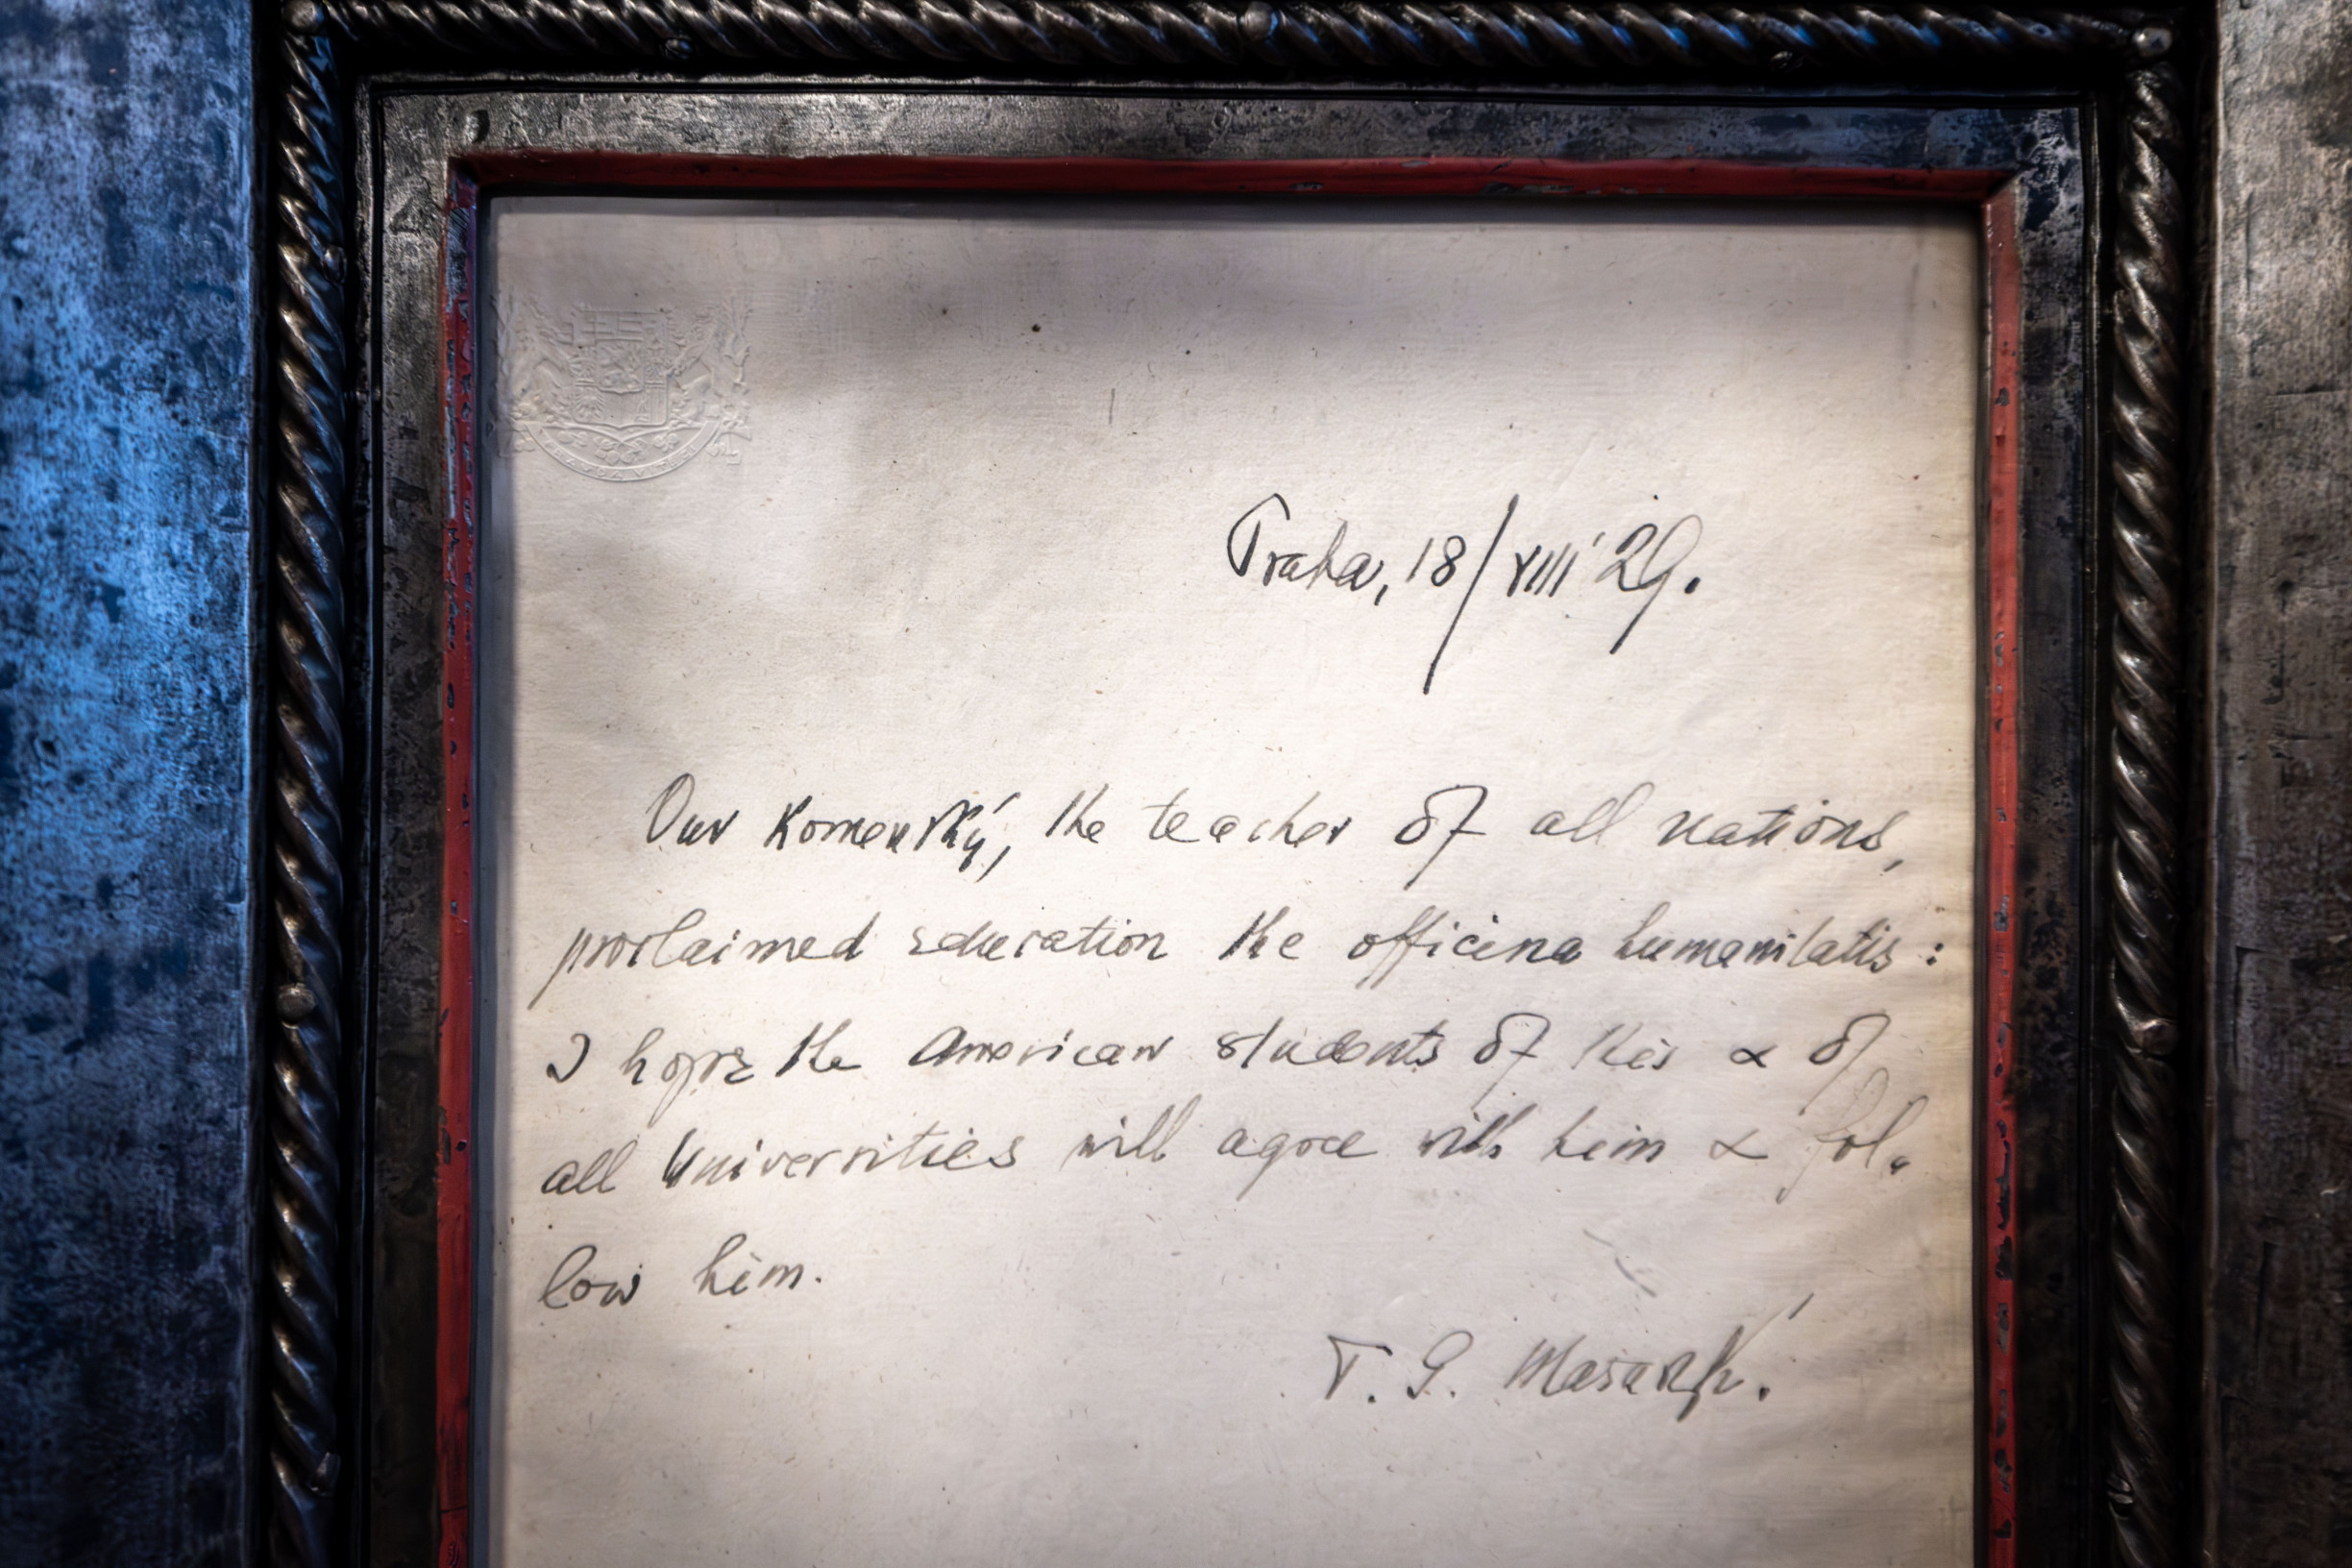 Praha, 18/VIII 29.
Our Komenský, the teacher of all nations,
proclaimed education the officina humanitatis:
I hope the American students of this & of
all Universities will agree with him & fol-
low him.
T. G. Masaryk.